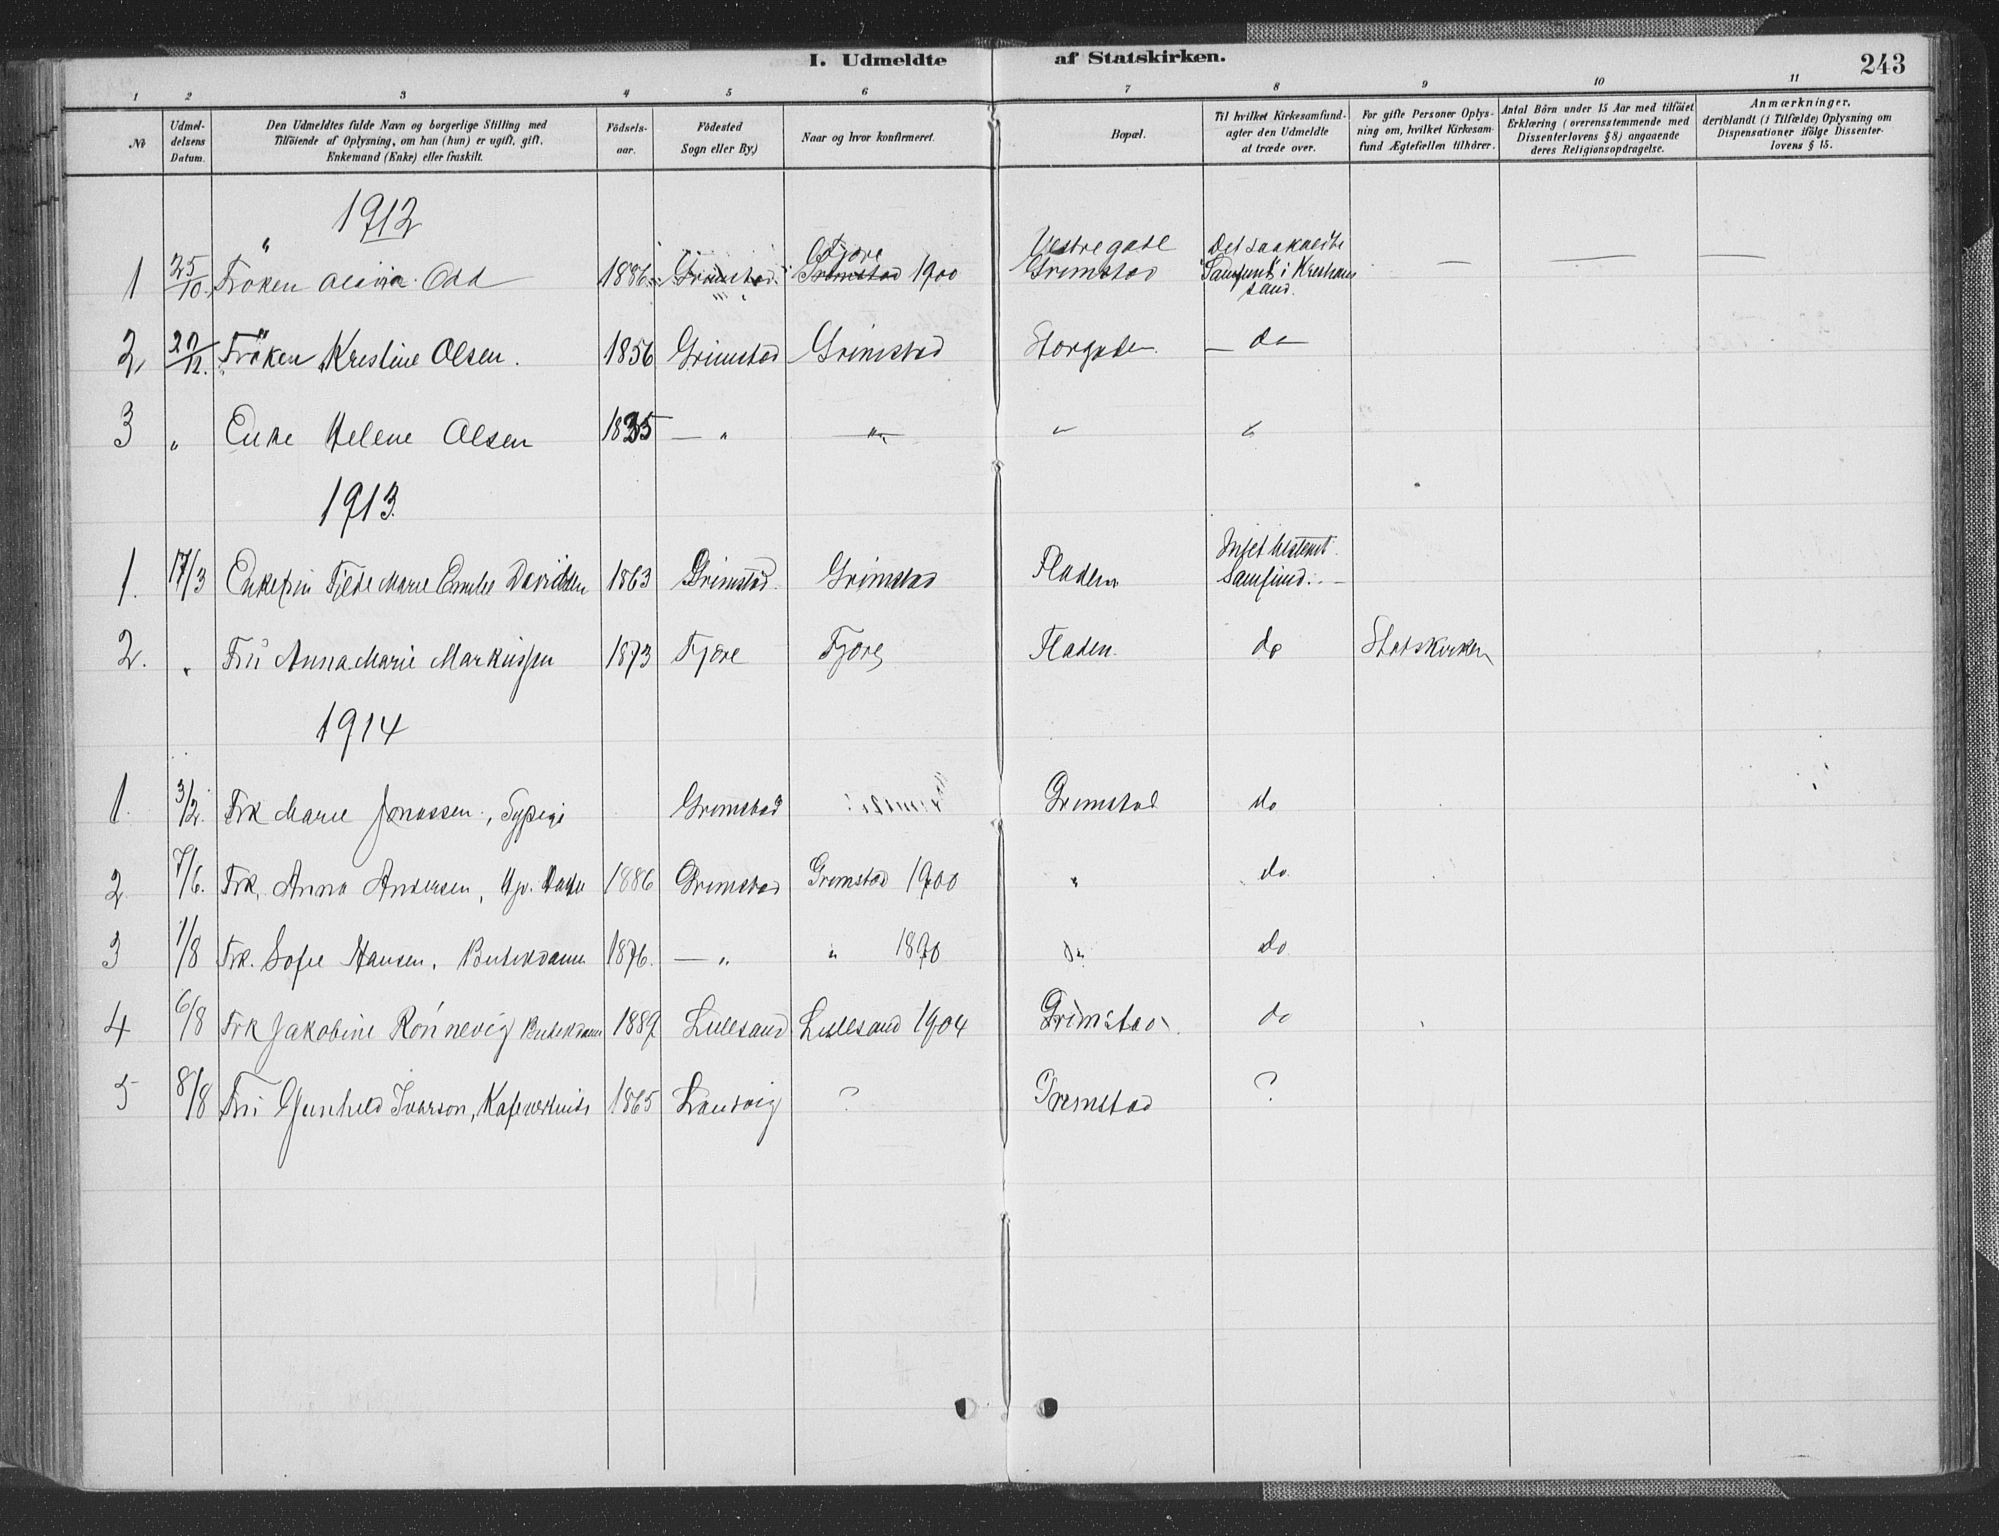 I. Udmeldte af Statskirken. 243
1 2 3 4 5 6 7 8 9 10 11
№ Udmeldelsens Datum. Den Udmeldtes fulde Navn og borgerlige Stilling med Tilföiende af Oplysning, om han (hun) er ugift, gift, Enkemand (Enke) eller fraskilt. Födselsaar. Födested Sogn eller By.) Naar og hvor konfirmeret. Bopæl. Til hvilket Kirkesamfund agter den Udmeldte at træde over. For gifte Personer Oplysning om, hvilket Kirkesamfund Ægtefællen tilhörer. Antal Börn under 15 Aar med tilföiet Erklæring (overensstemmende med Dissenterlovens § 8) angaaende deres Religionsopdragelse. Anmærkninger, deriblandt (i Tilfælde) Oplysning om Dispensationer ifölge Dissenterlovens § 15.
1912
1 25/10. Fröken Odd 1886 Grimstad Fjöre Grimstad 1900 Vestregade Grimstad Det saakaldte "Samfund" i Kristiansand. — — —
2, /12. Fröken Kristine Olsen. 1856 Grimstad Grimstad Storgaden — do —
3 " Enke Helene Olsen 1835 — " — " — " "
1913.
1. 17/3 Enkefru Tilde Marie Emilie Davidsen 1863 Grimstad. Grimstad Fladen Intet bestemt Samfund. —
2. " Fru Anna Marie Markussen 1873 Fjære Fjære Fladen do Statskirken
1914
1. 3/2. Frk Marie Jonassen, Sypige Grimstad Grimstad do
2 7/6. Frk. Anna Andersen, 1886 Grimstad Grimstad 1900 " do.
3 1/8 Frk. Sofie Hansen, Butikdame 1876. — " " 1890 do. do.
4 6/8 Frk Jakobine Rönnevig Butikdame 1889 Lillesand Lillesand 1904 Grimstad. do
5 8/8 Fru Gunhild Ivarson, Kafeværtinde 1865 Landvig ? Grimstad ?